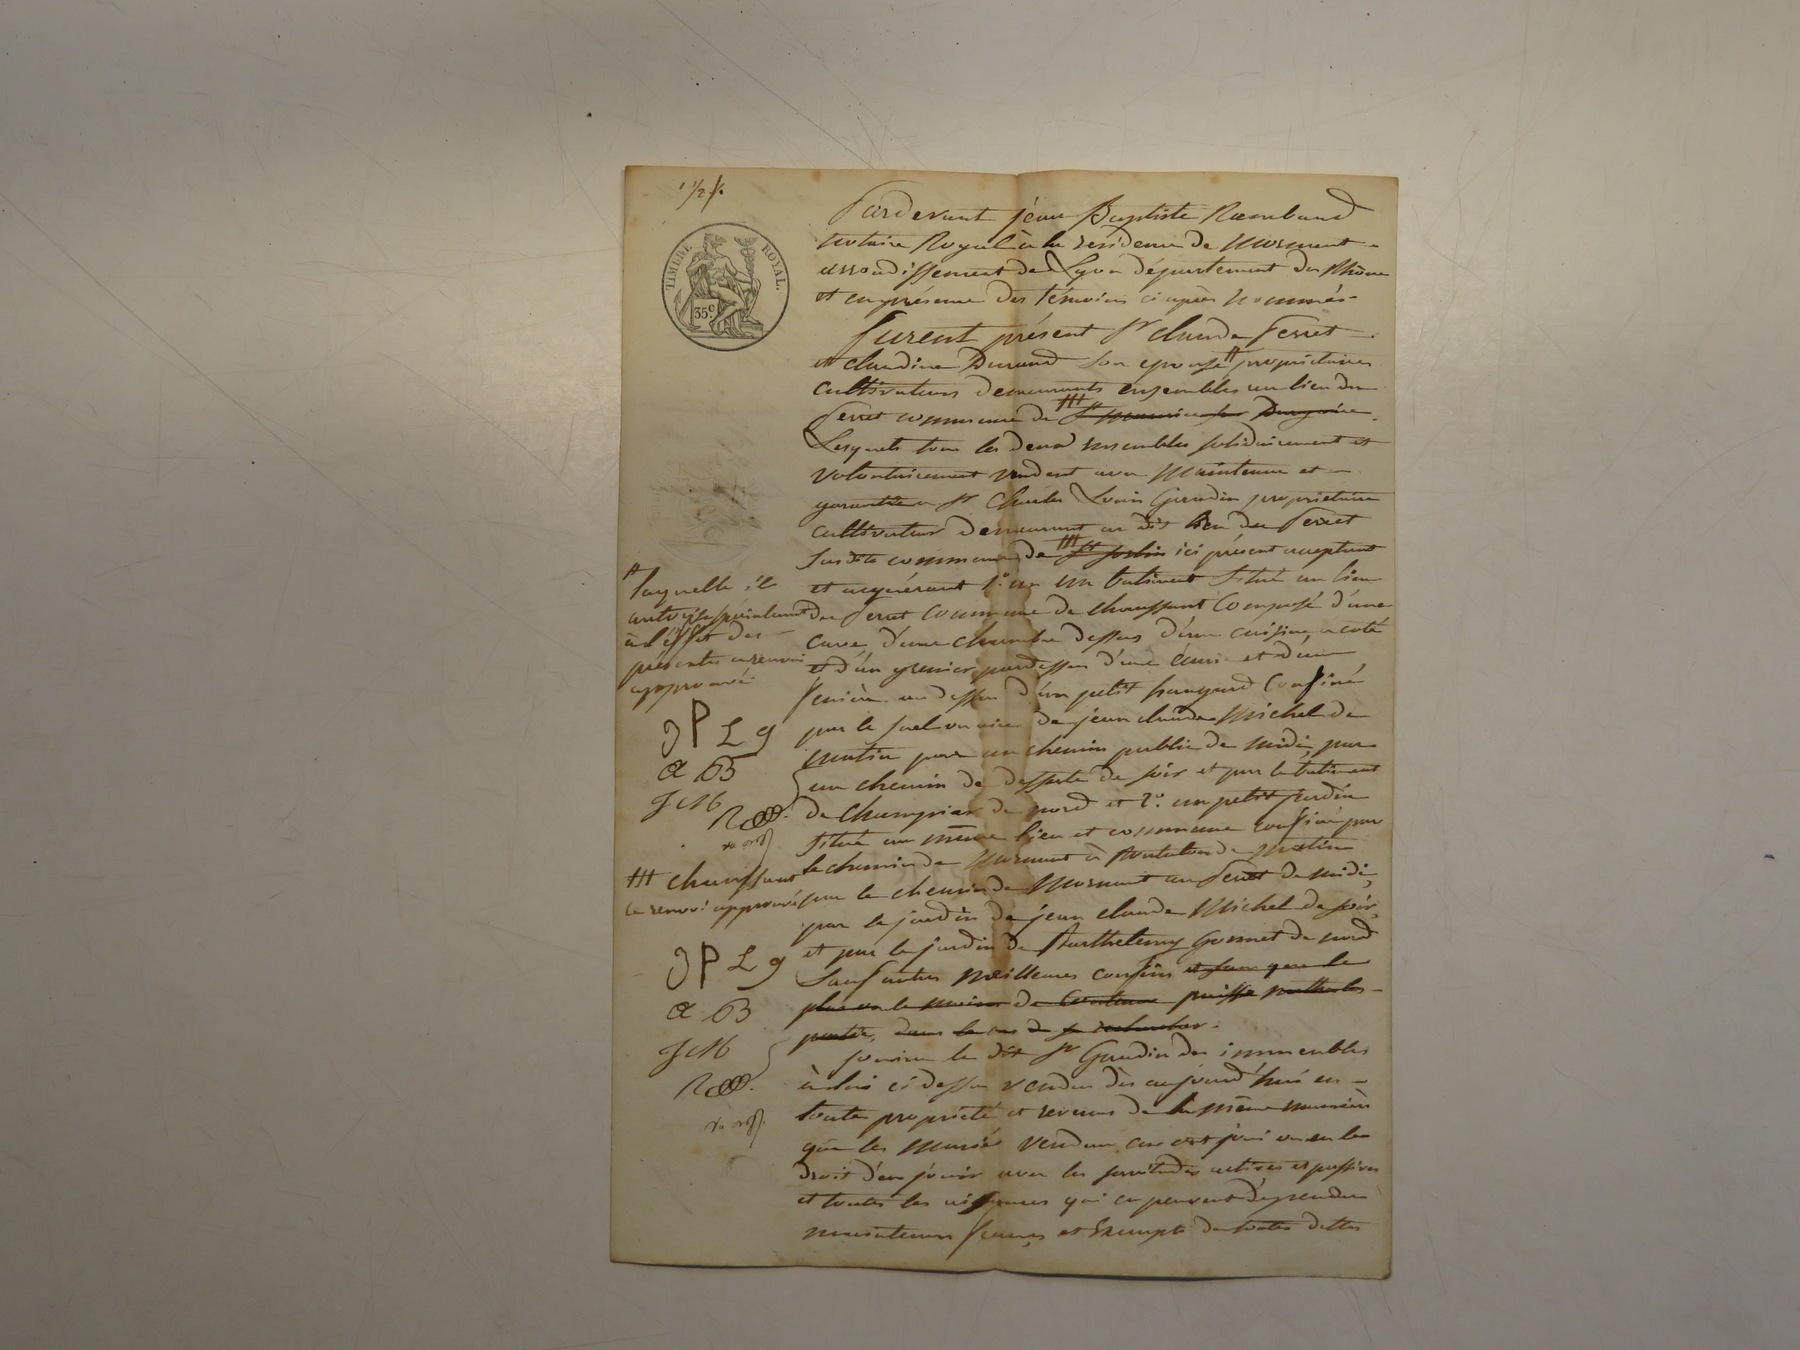 TIMBRE ROYAL.
35c
Pardevant jean Baptiste Raimbaud
notaire Royal à la residence de Mornant
arrondissement de Lyon département du Rhône
et en présence des témoins ci après nommés
furent présent Sr claude ferret
et claudine Durand son epouse # propriétaires
cultivateurs demeurants ensembles au lieu du
ferret commune de ###
Lesquels tous les deux ensembles solidairement et
volontairement vendent avec Maintenue et
garantie a Sr Charles Louis Gaudin propriétaire
cultivateur demeurant au dit lieu du ferret
susdite commune de ### ici présent acceptant
et acquérant 1° un batiment situé au lieu
du ferret commune de chaussant composé d'une
cave, d'une chambre dessus d'une cuisine a coté
et d'un grenier pardessus d'une écurie et d'une
feniére au dessus d'un petit hangard Confiné
par le suel ou aire de jean claude Michel de
matin par un chemin public de midi, par
un chemin de desserte de soir et par le batiment
de Champier de nord et 2° un petit jardin
situé au même lieu et commune confiné par
le chemin de Mornant à de matin
par le chemin de Mornant au ferret de midi,
par le jardin de jean claude Michel de soir,
et par le jardin de Barthelemy Gonnet de nord
sauf autres meilleures confins et sans que le
plus ou le moins de Contenue puisse
dans le cas de
jouira le dit Sr Gaudin des immeubles
à lui ci dessus vendus dès aujourd'hui en
toute propriété et revenus de la même manière
que les mariés vendeurs en ont joui ou eu le
droit d'en jouir avec les servitudes actives et passives
et toutes les aisances qui en peuvent dépendre
maintenus francs et Exempts de toutes dettes
# laquelle il
autorise spécialement
à l'effet des
présentes ce renvoi
approuvé
J P L g
C B
J C M
### chaussant
ce renvoi approuvé
J P L g
C B
J C M